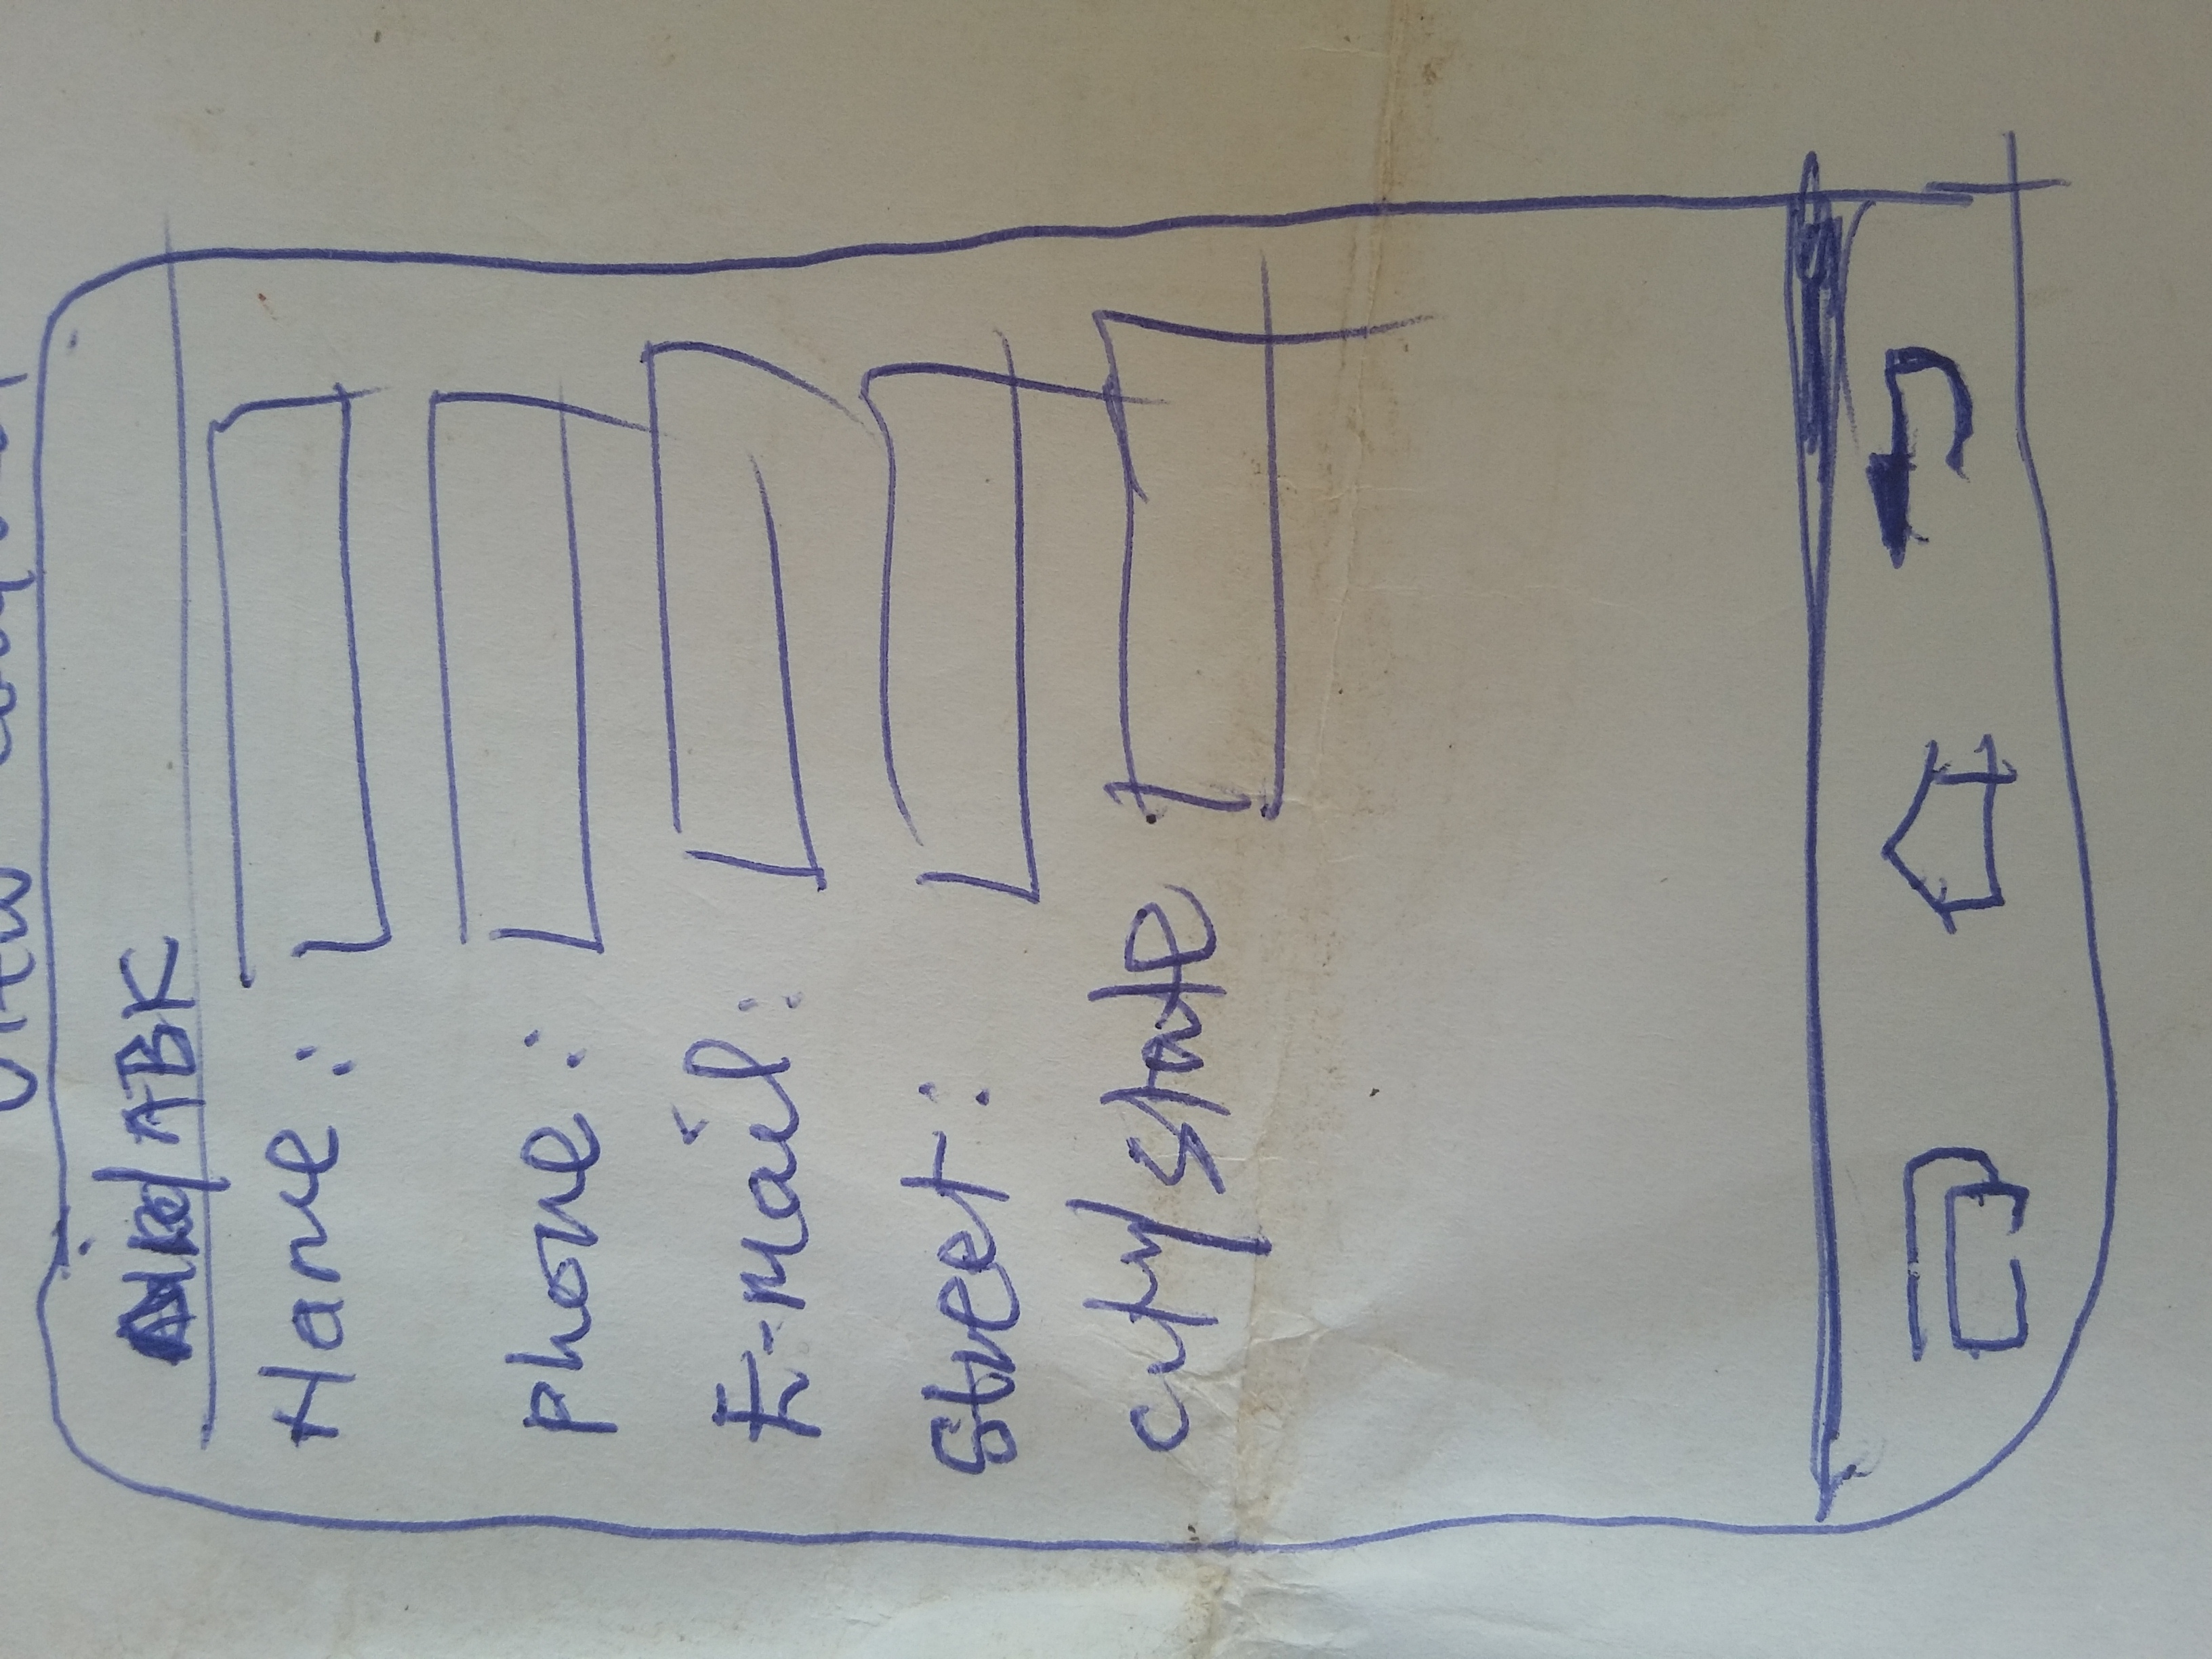 View
ABK
Name:
phone:
E-mail:
Street:
city/state